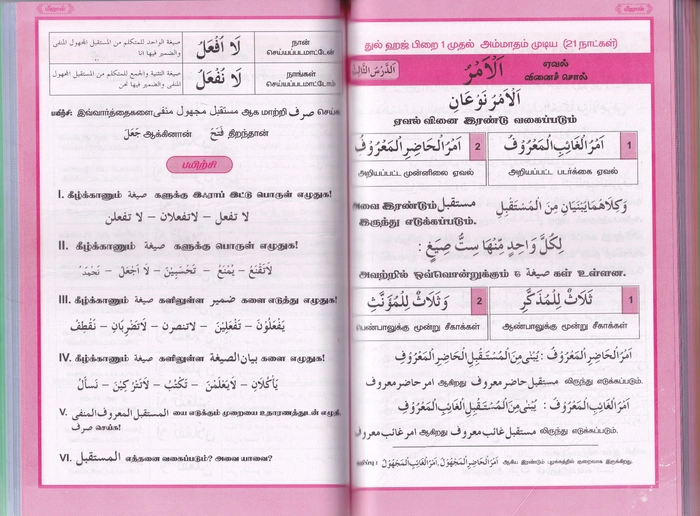 மீஸான்
لَا اُفْعَلُ
நான்
செய்யப்படமாட்டேன்
صيغة الواحد للمتكلم من المستقبل المجهول المنفى
والضمير فيها انا
لَا نُفْعَلُ
நாங்கள்
செய்யப்படமாட்டோம்
صيغة التثنية والجمع للمتكلم من المستقبل المجهول
المنفى والضمير فيها نحن
பயிற்சி: இவ்வார்த்தைகளை مستقبل مجهول منفى ஆக மாற்றி صرف செய்க
جَعَلَ ஆக்கினான் فَتَحَ திறந்தான்
பயிற்சி
I. கீழ்க்காணும் صيغة களுக்கு இஃராப் இட்டு பொருள் எழுதுக!
لا تفعل – لاتفعلان – لا تفعلن
II. கீழ்க்காணும் صيغة களுக்கு பொருள் எழுதுக!
لَاتَقْنَعُ – يُمْنَعُ – تُحْسَبِيْنَ – لَا اَجْعَلُ – نَحْمَدُ
III. கீழ்க்காணும் صيغة களிலுள்ள ضمير களை எடுத்து எழுதுக!
يُفْعَلُوْنَ – تَفْعَلِيْنَ – لاتنصرن – لَاتَضْرِبَانِ – نَقْطِفُ
IV. கீழ்க்காணும் صيغة களிலுள்ள بيان الصيغة களை எழுதுக!
يَأْكُلَانِ – لَا يَعْلَمْنَ – تَكْتُبُ – لَاتَتْرُكِيْنَ – نَسْأَلُ
V. المستقبل المعروف المنفى யை எடுக்கும் முறையை உதாரணத்துடன் எழுதி
صرف செய்க!
VI. المستقبل எத்தனை வகைப்படும்? அவை யாவை?
மீஸான்
துல் ஹஜ் பிறை 1 முதல் அம்மாதம் முடிய (21 நாட்கள்)
اَلدَّرْسُ الثَّالِثُ
اَلْاَمْرُ
ஏவல்
வினைச் சொல்
اَلْاَمْرُ نَوْعَانِ
ஏவல் வினை இரண்டு வகைப்படும்
1 اَمْرُ الْغَائِبِ الْمَعْرُوْفُ
2 اَمْرُ الْحَاضِرِ الْمَعْرُوْفُ
அறியப்பட்ட படர்க்கை ஏவல்
அறியப்பட்ட முன்னிலை ஏவல்
وَكِلَاهُمَا يُبْنَيَانِ مِنَ الْمُسْتَقْبِلِ
அவை இரண்டும் مستقبل
இருந்து எடுக்கப்படும்.
لِكُلِّ وَاحِدٍ مِّنْهَا سِتُّ صِيَغٍ :
அவற்றில் ஒவ்வொன்றுக்கும் ௬ صيغة கள் உள்ளன.
1 ثَلَاثٌ لِلْمُذَكَّرِ
2 وَثَلَاثٌ لِلْمُؤَنَّثِ
ஆண்பாலுக்கு மூன்று சீகாக்கள்
பெண்பாலுக்கு மூன்று சீகாக்கள்
اَمْرُ الْحَاضِرِ الْمَعْرُوْفُ : يُبْنٰى مِنَ الْمُسْتَقْبِلِ الْحَاضِرِ الْمَعْرُوْفِ
امر حاضر معروف ஆகிறது مستقبل حاضر معروف லிருந்து எடுக்கப்படும்.
اَمْرُ الْغَائِبِ الْمَعْرُوْفُ : يُبْنٰى مِنَ الْمُسْتَقْبِلِ الْغَائِبِ الْمَعْرُوْفِ
امر غائب معروف ஆகிறது مستقبل غائب معروف லிருந்து எடுக்கப்படும்.
குறிப்பு : اَمْرُ الْحَاضِرِ الْمَجْهُوْلُ، اَمْرُ الْغَائِبِ الْمَجْهُوْلُ ஆகிய இரண்டும் புழக்கத்தில் குறைவாக இருக்கிறது.